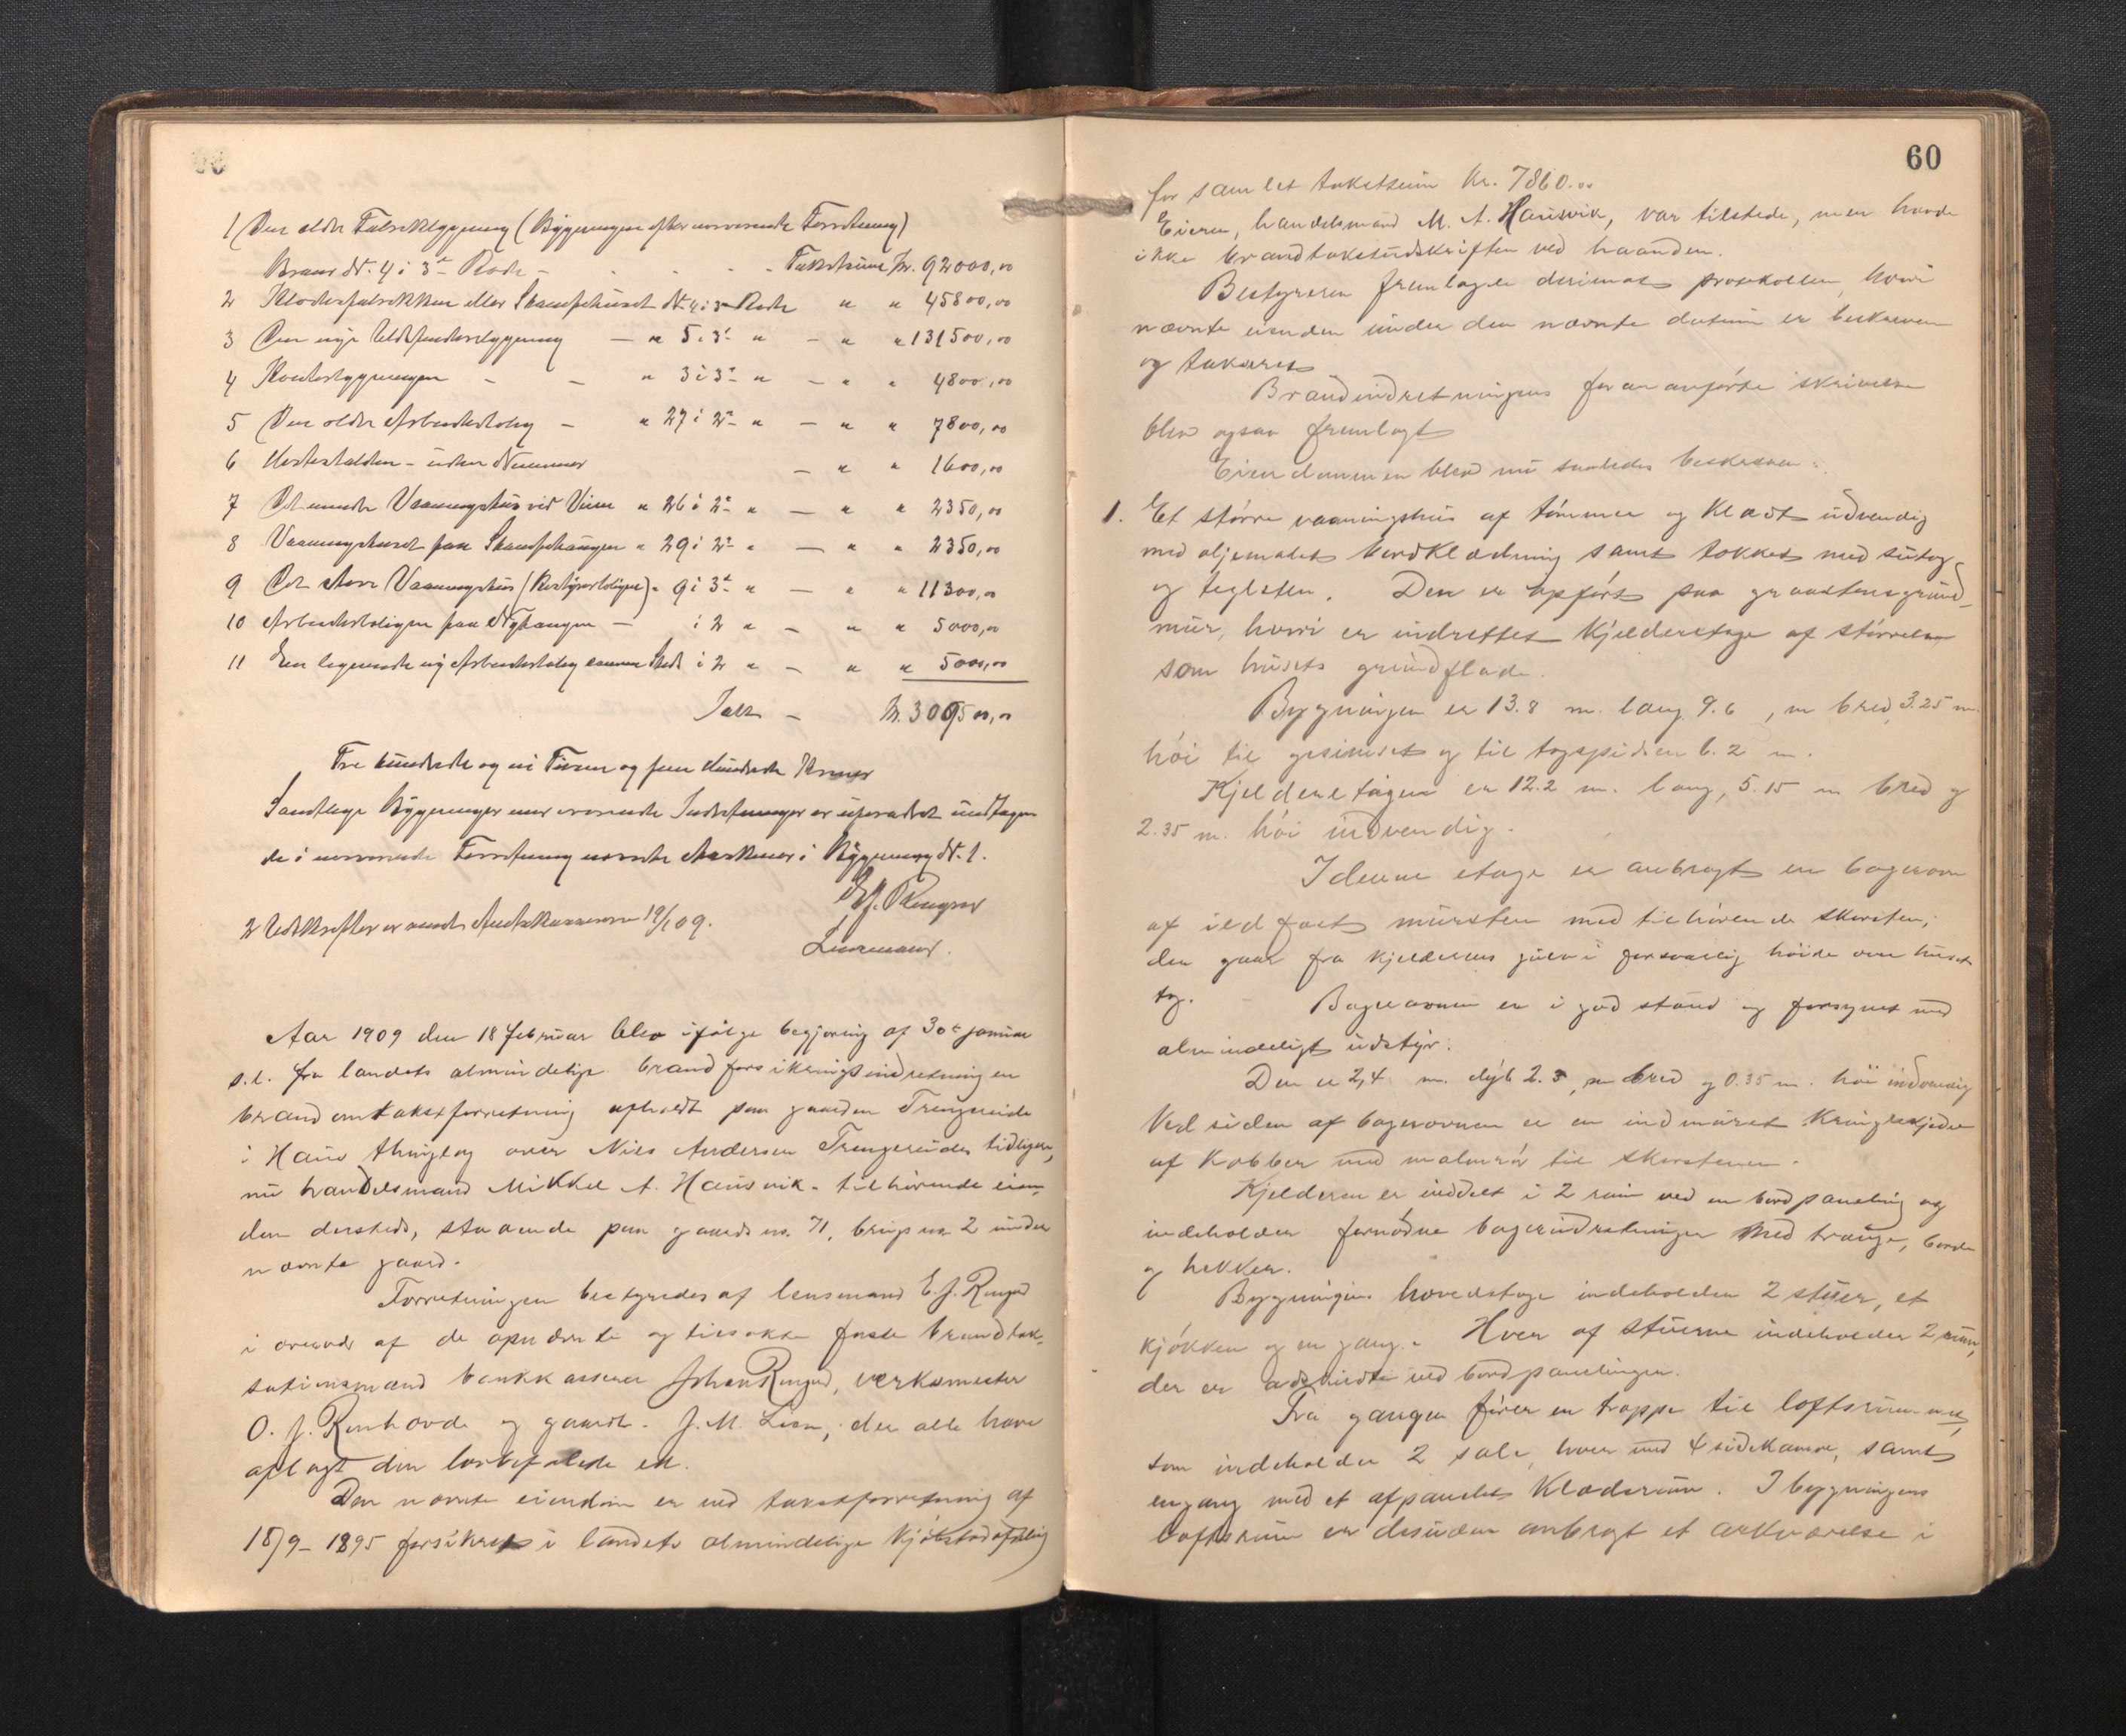 1 Den ældre Fabrikbygning (Bygningen efter nærværende Forretning)
Brand Nr. 4 i 3die Rode - Takstsum Kr. 92000,00
2 Klædesfabrikken eller Stampehuset Nr. 4 i 3die Rode " " 45800,00
3 Den nye Uldspinderibygning - " 5 i 3die " - " " 131500,00
4 Kontorbygningen - - " 3 i 3die " - " " 4800,00
5 Den ældre Arbeiderbolig - " 27 i 2den " - " " 7800,00
6 Hestestalden - uden Nummer - " " 1600,00
7 Det mindre Vaaningshus ved Veien " 26 i 2den " - " " 2350,00
8 Vaaningshuset paa Stampehaugen " 29 i 2den " - " " 2350,00
9 Det store Vaaningshus (Bestyrerboligen) " 9 i 3die " - " " 11300,00
10 Arbeiderboligen paa Nyhaugen - i 2 " - " " 5000,00
11 En lignende ny Arbeiderbolig samme Sted i 2 " - " " 5000,00
Ialt - Kr. 309500,00
Tre hundrede og ni Tusen og fem Hundrede Kroner
Samtlige Bygninger med værende Indretninger er uforandret undtagen
de i nærværende Forretning nævnte Maskiner i Bygning Nr. 1.
E. J. Ringød
Lensmand.
2 Udskrifter er sendt Amtskassereren 19/2 09.
Aar 1909 den 18 februar blev ifølge begjæring af 30te januar
s. l. fra landets almindelige brandforsikringsindretning en
brandomtakstforretning afholdt paa gaarden Trengereide
i Haus thinglag over Nils Andersen Trengereides tidligere,
nu handelsmand Mikkel A. Hausvik tilhørende eien-
dom dersteds, staaende paa gaards no. 71, brugs no 2 under
nævnte gaard.
Forretningen bestyredes af lensmand E. J. Ringød
i overvær af de opnævnte og tilsakte faste brandtak-
stationsmænd bankkasserer Johan Ringød, verksmester
O. J. Rønhovde og gaardb. J. M. Lien, der alle have
aflagt den lovbefalede ed.
Den nævnte eiendom er ved takstforretning af
18/9- 1895 forsikret i landets almindelige kjøbstadafdeling
60
for samlet takstsum Kr. 7860.00
Eieren, handelsmand M. A. Hausvik, var tilstede, men havde
ikke brandtakstudskriften ved haanden.
Bestyreren fremlagde derimot protokollen, hvori
nævnte eiendom under den nævnte datum er beskreven
og takseret
Brandindretningens foran anførte skrivelse
blev ogsaa fremlagt
Eiendommen blev nu saaledes beskreven:
1. Et større vaaningshus af tømmer og klædt udvendig
med oljemalet bordklædning samt tækket med sutag
og teglsten. Den er opført paa graastensgrund-
mur, hvori er indrettet kjelderetage af størrelse
som husets grundflade.
Bygningen er 13.8 m. lang, 9.6 m bred, 3.25 m.
høi til gesimset og til tagspidsen 6.2 m.
Kjelderetagen er 12.2 m. lang, 5.15 m bred og
2.35 m. høi indvendig.
I denne etage er anbragt en bagerovn
af ildfast mursten med tilhørende skorsten,
der gaar fra kjelderens gulv i forsvarlig høide over husets
tag. Bagerovnen er i god stand og forsynet med
almindeligt udstyr.
Den er 2,4 m. dyb 2.5 m bred og 0.35 m. høi indvendig
Ved siden af bagerovnen er en indmuret kringlekjedel
af kobber med malmrør til skorstenen.
Kjelderen er inddelt i 2 rum ved en bordpaneling og
indeholder fornødne bagerindretninger med trauge, borde
og hekker.
Bygningens hovedetage indeholder 2 stuer, et
kjøkken og en gang. Hver af stuerne indeholder 2 rum,
der er adskildte ved bordpanelingen.
Fra gangen fører en trappe til loftsrummet,
som indeholder 2 sale, hver med 4 sidekamre, samt
en gang med et afpanelet klæderum. I bygningens
loftsrum er desuden anbragt et arkværelse i